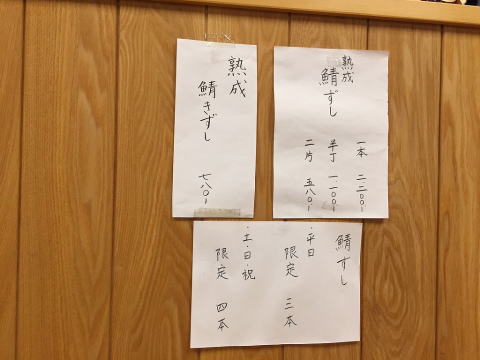 熟成
鯖きずし
七八〇-
熟成
鯖ずし
一本 二二〇〇-
半丁 一一〇〇-
二片 五八〇-
鯖すし
・平日
限定 三本
・土・日・祝
限定 四本